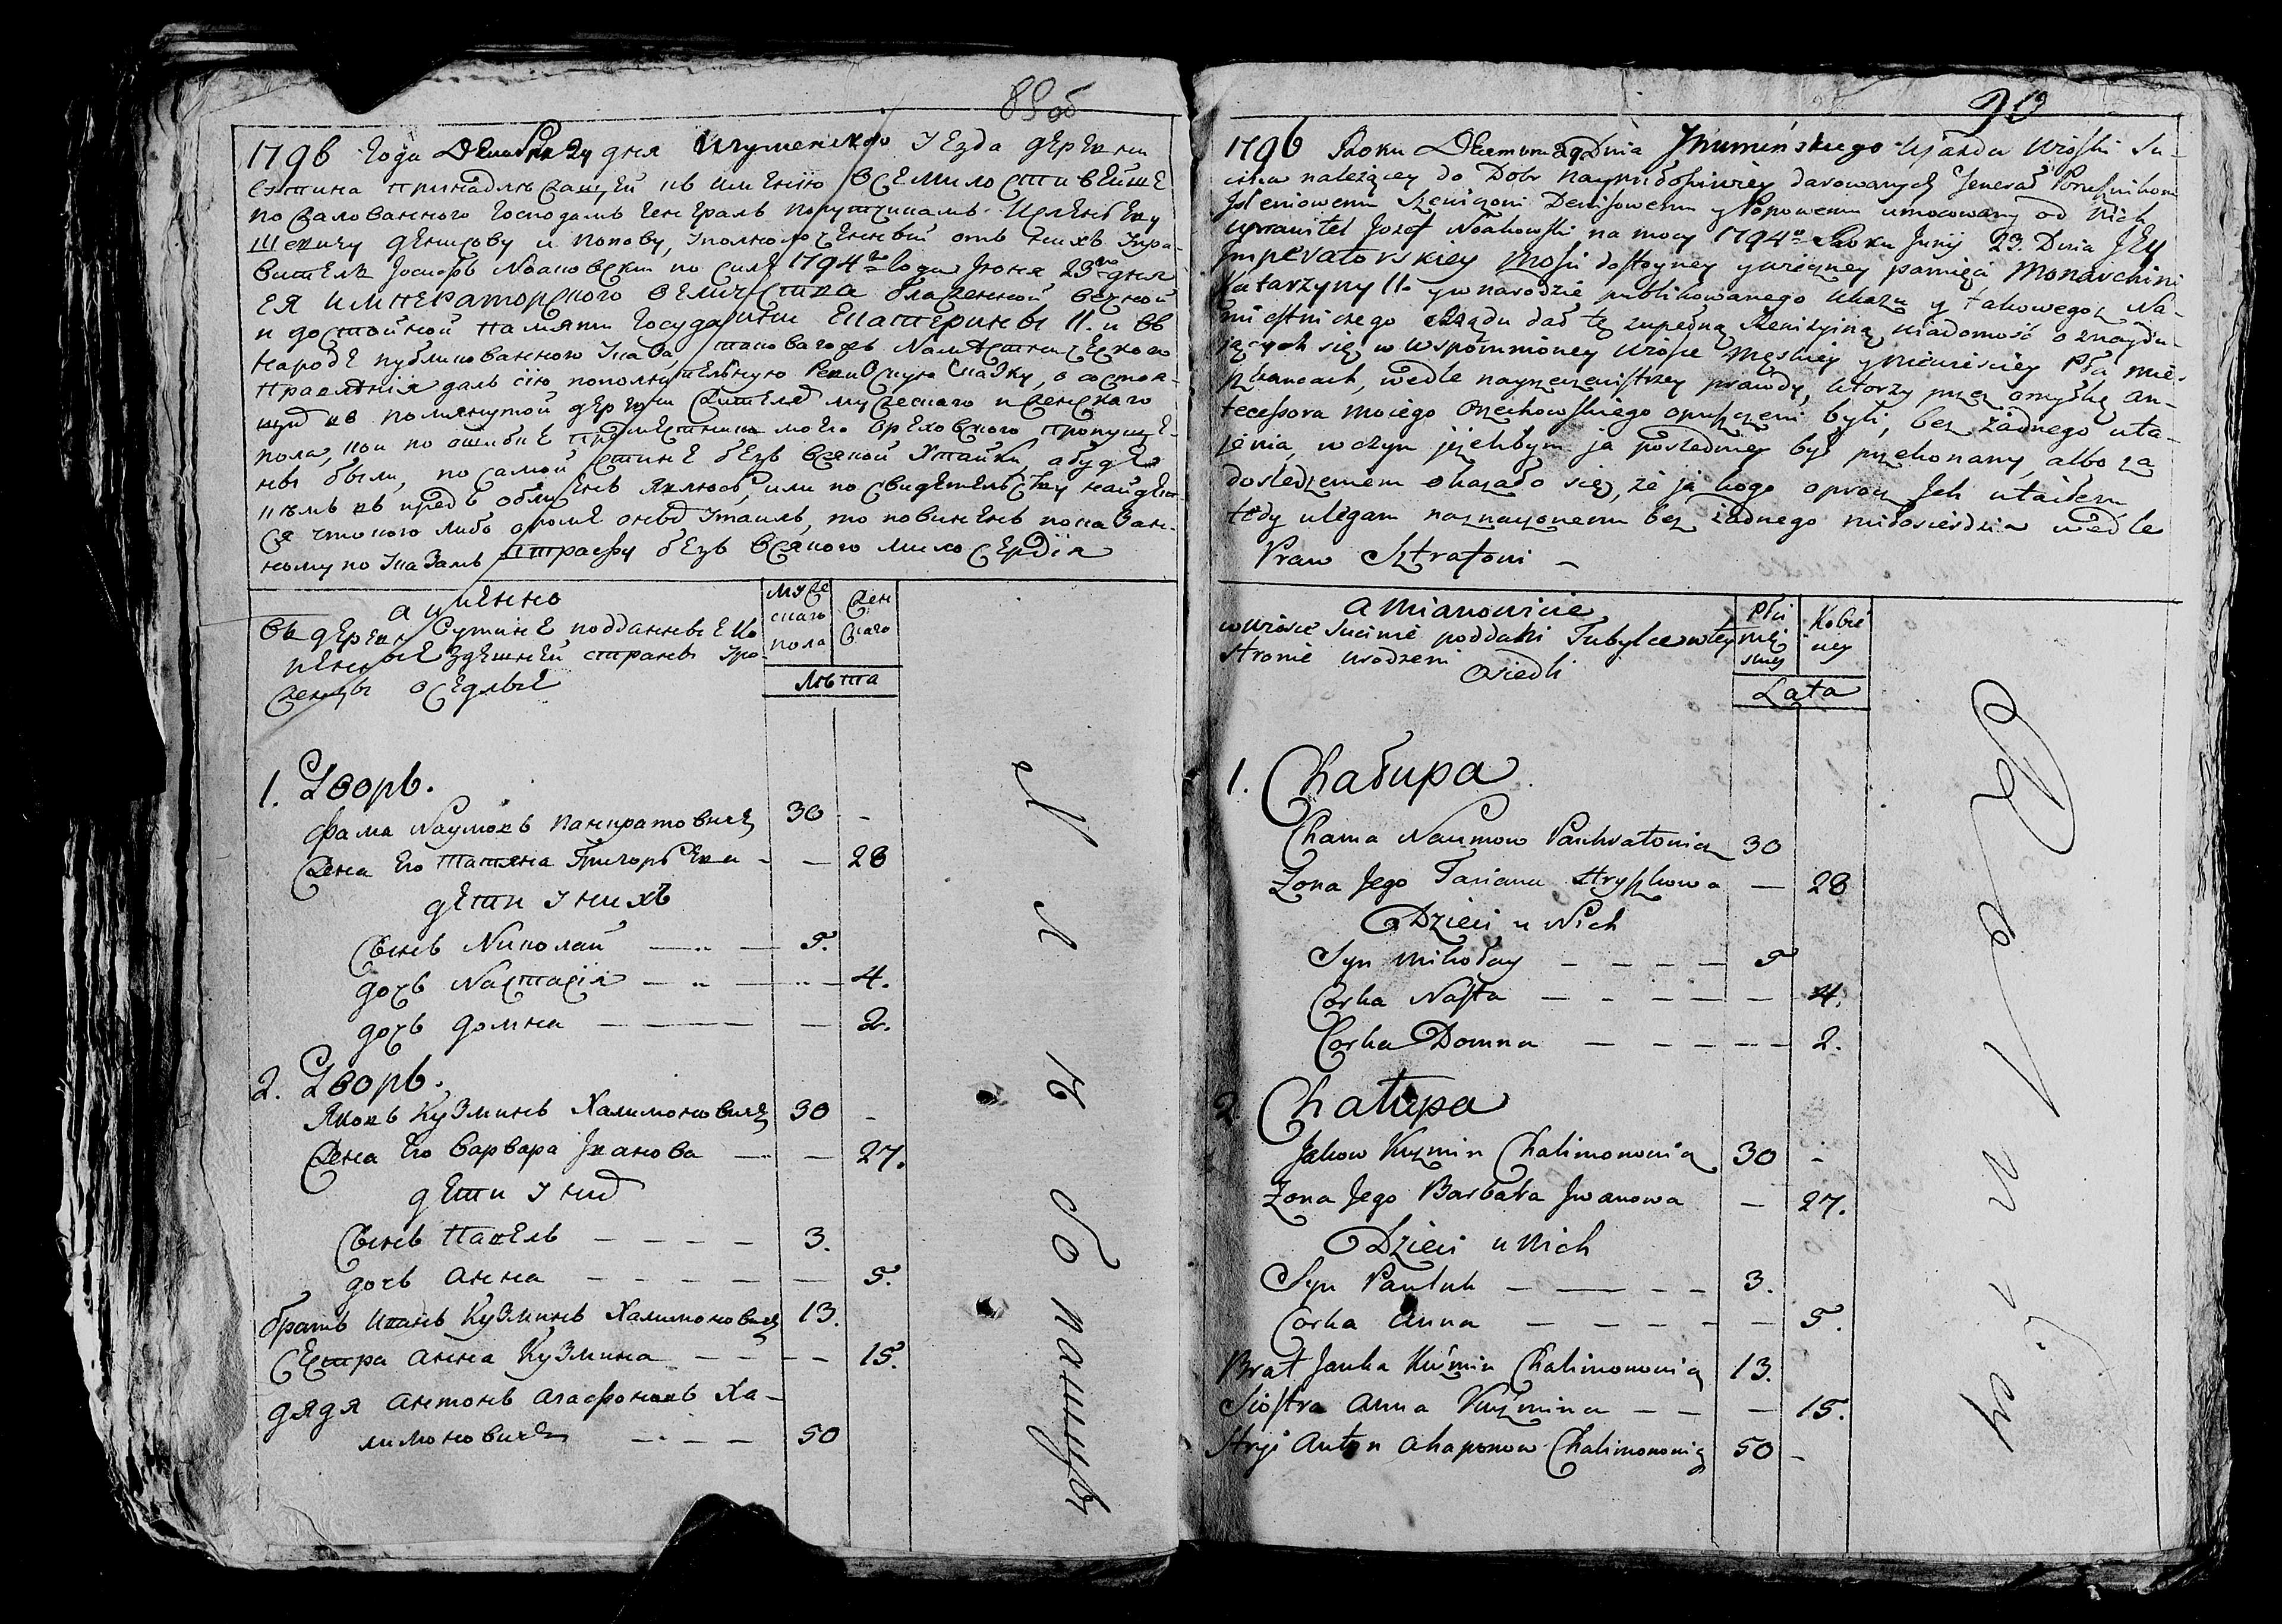 89об
1796 года Декабря 29 дня Игуменского уезда деревни
Сутина принадлежащей къ имению Всемилостивейше
пожалованного Господамъ Генералъ порутчикамъ
Шевичу Денисову и Попову, уполномоченный отъ нихъ упра-
витель Іосифъ Ноаковски по силе 1794го Года Июня 23го дня
ЕЯ ИМПЕРАТОРСКОГО Величества блаженной вечной
и достойной памяти Государини Екатерины II. и въ
народе публикованного указа, таковагожъ Наместническаго
Правления далъ сію пополнительную Ревизскую скаску, о состоя-
щихъ въ помянутой деревни жителях мужескаго и женскаго
пола, кои по ошибке предместника моего Ореховского пропуще-
ны были, по самой истине безъ всякой утайки, а буде
кемъ въ предъ обличенъ явлюсь, или по свидетельству найдет-
ся что кого либо окроме оныхъ утаилъ, то повиненъ показан-
ному по указамъ штрафу безъ всякого милосердія
а именно
въ деревни Сутине подданные
здешней страны уро-
женцы оседлые
муже
скаго
пола
жен
скаго
лѣта
1. Дворъ.
Фама Наумовъ Панкратовичъ 30 -
Жена Его Татяна Григорьева - - 28
дети у нихъ
Сынъ Николай - 5.
дочь Настасія - 4.
дочь Домна - 2.
2. Дворъ.
Яковъ Кузминъ Халимоновичъ 30 -
Жена Его Варвара Иванова - 27.
дети у них
Сынъ Павелъ - 3.
дочь Анна - 5.
братъ Иванъ Кузминъ Халимоновичъ 13.
Сестра Анна Кузмина - 15.
дядя Антонъ Агафоновъ Ха-
лимоновичъ - 50
90
1796 Roku Decembra 29 Dnia Jhumeńskiego Ujazdu Wioski Su-
cina należącey do Dobr naymiłościwiey darowanych Jenerał Porucznikom
Szewiczowi Denisowemu y Popowemu umocowany od Nich
uprawitel Jozef Noakowski na mocy 1794o Roku Junij 23. Dnia JEY
Jmperatorskiey Mości dostoyney y wieczney pamięci Monarchini
Katarzyny II. y w narodzie publikowanego Ukazu y takowegoż Na-
miestniczego Rządu dał tę zupełną Rewizyiną wiadomość o znaydu-
jących się w wspomnioney wiosce męskiey y niewieściey Płci mie-
szkancach, wedle nayrzeczywistszey prawdy, ktorzy przez omyłkę an-
tecessora moiego Orzechowskiego opuszczeni byli, bez żadnego uta-
jenia, w czym jeżelibym ja pośledniey był przekonany, albo za
dośledzeniem okazało się, że ja kogo oprocz Jch utaiłem
tedy ulegam naznaczonemu bez żadnego miłosierdzia wedle
Praw Sztrafowi -
a Mianowicie
w wiosce Sucinie poddani Tubylce w tey
stronie urodzeni
Osiedli
Płci
męz
kiey
Kobie
cey
Lata
1. Chałupa
Chama Naumow Pankratowicz 30
Zona Jego Taciana Hryszkowa - 28
Dzieci u Nich
Syn Mikołay - 5
Corka Nasta - 4.
Corka Domna - 2.
2 Chałupa
Jakow Kuzmin Chalimonowicz 30 -
Zona Jego Barbara Jwanowa - 27.
Dzieci u Nich
Syn Pauluk - 3.
Corka Anna - 5.
Brat Janka Kuźmin Chalimonowicz 13.
Siostra Anna Kuźmina - 15.
Stryi Anton Ahaponow Chalimonowicz 50 -